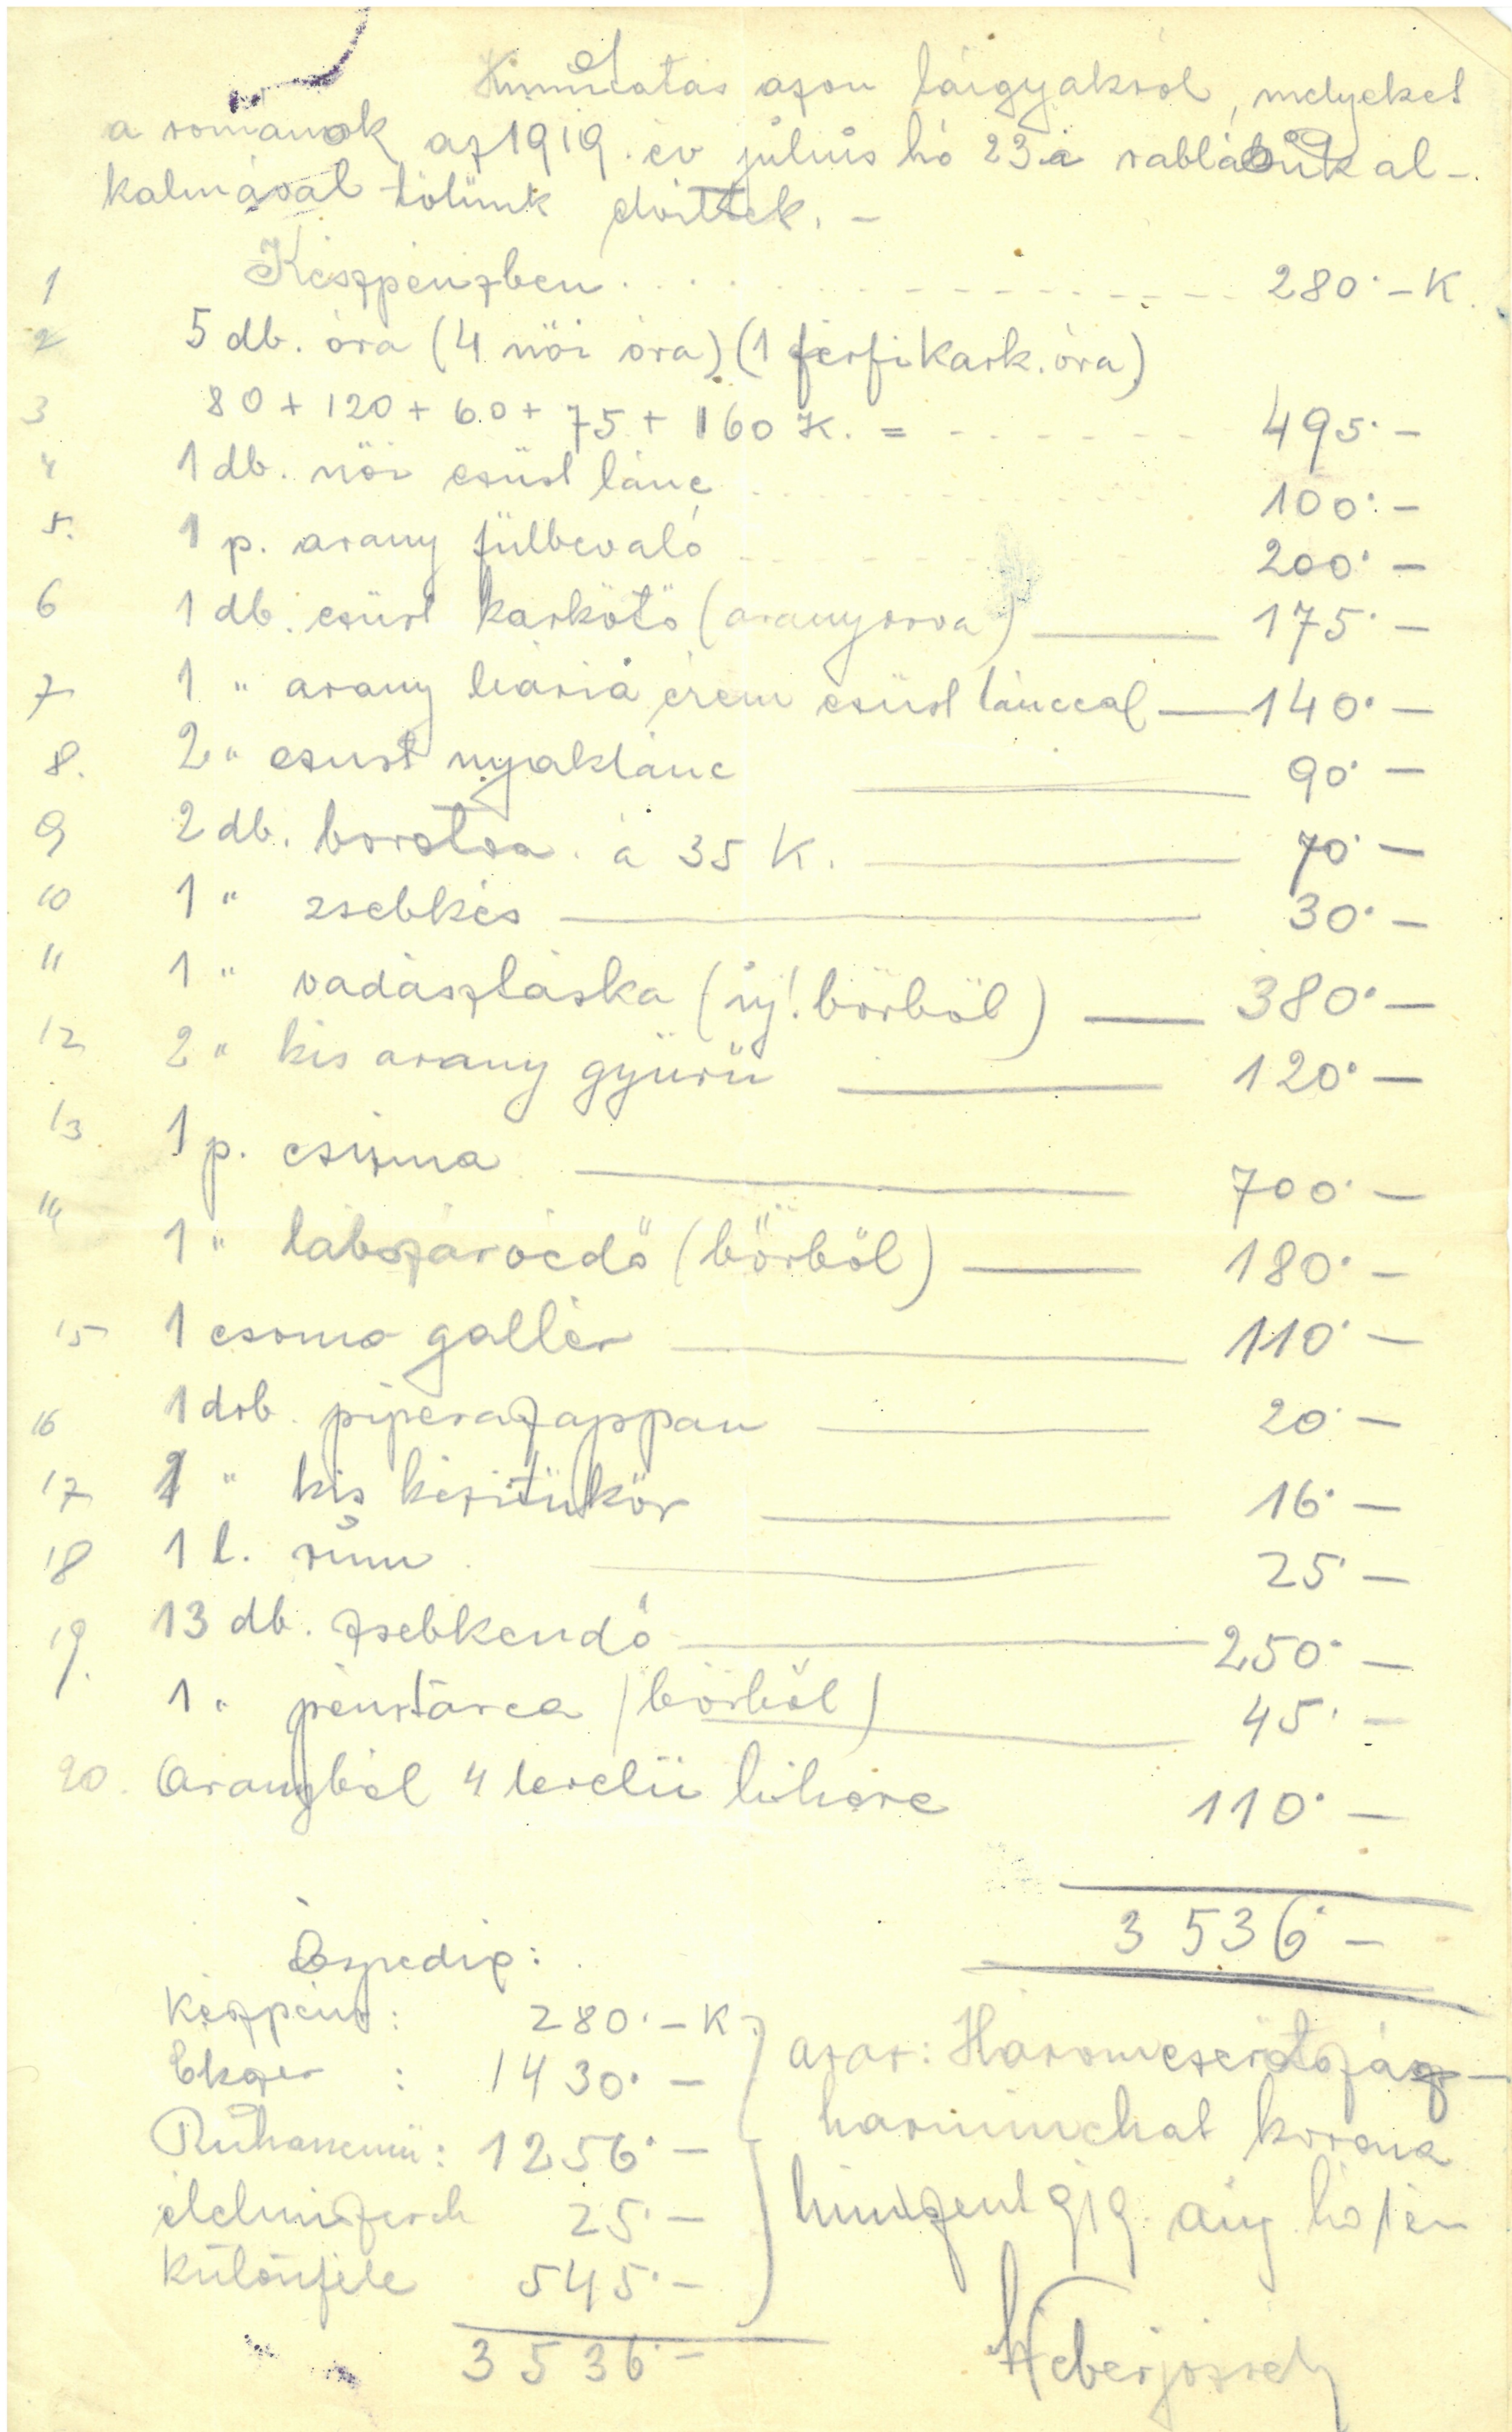 Kimutatás azon tárgyakról, melyeket
a románok az 1919. év július hó 23.á rablásuk al-
kalmával tőlünk elvittek. -
1 Készpénzben 280.- K.
2 5 db. óra (4 női óra) (1 férfi kark. óra)
3 80 + 120 + 60 + 75 + 160 K. = 495.-
4 1 db. női ezüst lánc 100.-
5. 1 p. arany fülbevaló 200.-
6 1 db. ezüst karkötő ( ) 175.-
7 1 " arany Mária érem ezüst lánccal 140.-
8. 2 " ezüst nyaklánc 90.-
9 2 db. borotva á 35 K. 70.-
10 1 " zsebkés 30.-
11 1 " vadásztáska (új! bőrből) 380.-
12 2 " kis arany gyürü 120.-
13. 1 p. csizma 700.-
14 1 " lábszárvédő (bőrből) 180.-
15 1 csomó gallér 110.-
16 1 drb. piperaszappan 20.-
17 1 " kis kézitükör 16.-
18 1 l. rum 25.-
19. 13 db. zsebkendő 250.-
1 " pénztárca (bőrből) 45.-
20. Aranyból 4 levelü lóhere 110.-
3536.-
Készpénz: 280.- K
Ékszer : 1430.-
Ruhanemü: 1256.-
élelmiszerek 25.-
Különféle 545.-
3536.-
azaz: Háromezerötszáz-
harminchat korona
919. aug. hó 1 én
Weber József